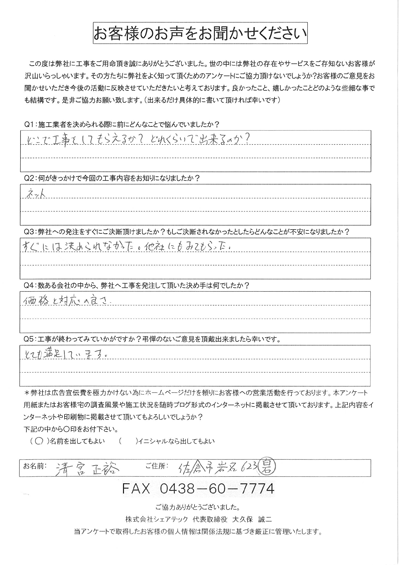 お客様のお声をお聞かせください
この度は弊社に工事をご用命頂き誠にありがとうございました。世の中には弊社の存在やサービスをご存知ないお客様が
沢山いらっしゃいます。その方たちに弊社をよく知って頂くためのアンケートにご協力頂けないでしょうか?お客様のご意見をお
聞かせいただき今後の活動に反映させていただきたいと考えております。良かったこと、嬉しかったことどのような些細な事で
も結構です。是非ご協力お願い致します。(出来るだけ具体的に書いて頂ければ幸いです)
Q1:施工業者を決められる際に前にどんなことで悩んでいましたか?
どこで工事をしてもらえるか?どれくらいで出来るのか?
Q2:何がきっかけで今回の工事内容をお知りになりましたか?
ネット
Q3:弊社への発注をすぐにご決断頂けましたか?もしご決断されなかったとしたらどんなことが不安になりましたか?
すぐには決められなかった。他社にもみてもらった。
Q4:数ある会社の中から、弊社へ工事を発注して頂いた決め手は何でしたか?
価格と対応の良さ
Q5:工事が終わってみていかがですか?忌憚のないご意見を頂戴出来ましたら幸いです。
とても満足しています。
*弊社は広告宣伝費を極力かけない為にホームページだけを頼りにお客様への営業活動を行っております。本アンケート
用紙またはお客様宅の調査風景や施工状況を随時ブログ形式のインターネットに掲載させて頂いております。上記内容をイ
ンターネットや印刷物に掲載させて頂いてもよろしいでしょうか?
下記の中から〇印をお付下さい。
(〇)名前を出してもよい ( )イニシャルなら出してもよい
お名前: 清宮 正裕 ご住所: 佐倉市岩名623
FAX 0438-60-7774
ご協力ありがとうございました。
株式会社シェアテック 代表取締役 大久保 誠二
当アンケートで取得したお客様の個人情報は関係法規に基づき厳正に管理いたします。